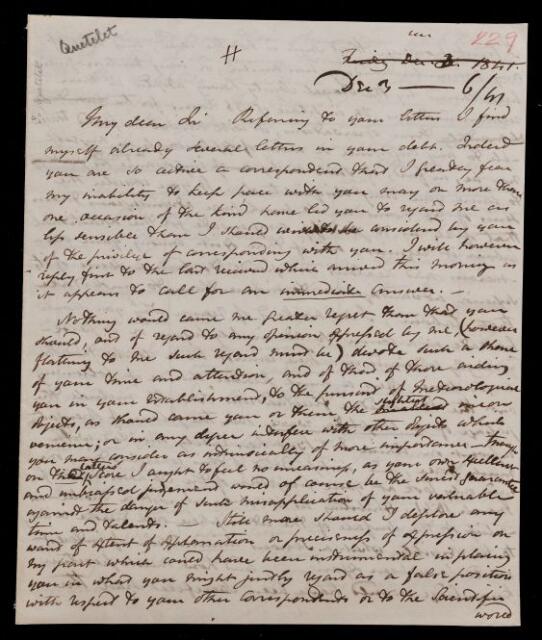 Quetelet
H
229
Friday Dec 3. 1841.
Dec 3 — 6/41
My dear Sir Referring to your letters I find
myself already several letters in your debt. Indeed
you are so active a correspondent that I greatly fear
my inability to keep pace with you may on more than
one occasion of the kind have led you to regard me as
less sensible than I should be considered by you
of the privilege of corresponding with you. I will however
reply first to the last received which arrived this morning as
it appears to call for an immediate answer. —
Nothing would cause me greater regret than that you
should, out of regard to any opinion expressed by me, (however
flattering to me such regard must be) devote such a share
of your time and attention, and of that of those aiding
you in your Establishment, to the pursuit of Meteorological
objects, as should cause you or them the slightest incon
venience; or in any degree interfere with other objects which
you may consider as intrinsically of more importance – though
on the latter score I ought to feel no uneasiness, as your own excellent
and unbiassed judgement would of course be the surest guarantee
against the danger of such misapplication of your valuable
time and talents. — Still more should I deplore any
want of extent of explanation or preciseness of expression on
my part which could have been instrumental in placing
you in what you might justly regard as a false position
with respect to your other correspondents or to the Scientific
world